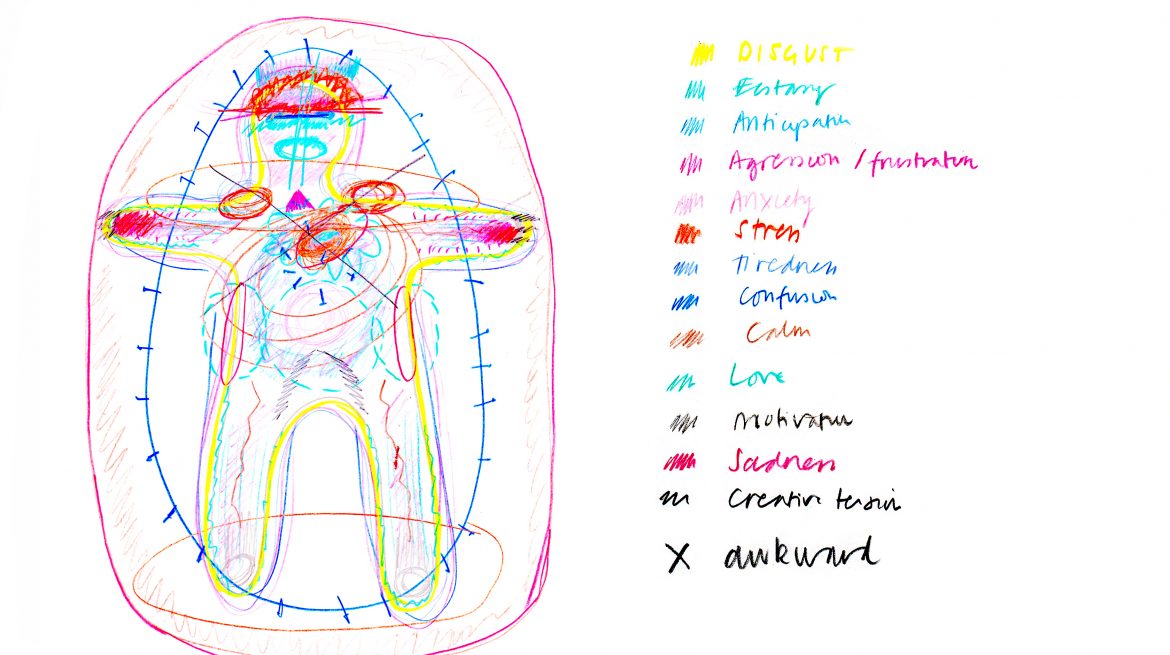 DISGUST
Ecstasy
Anticipation
Agression / frustration
Anxiety
Stress
Tiredness
Confusion
Calm
Love
Motivation
Sadness
Creative tension
X awkward